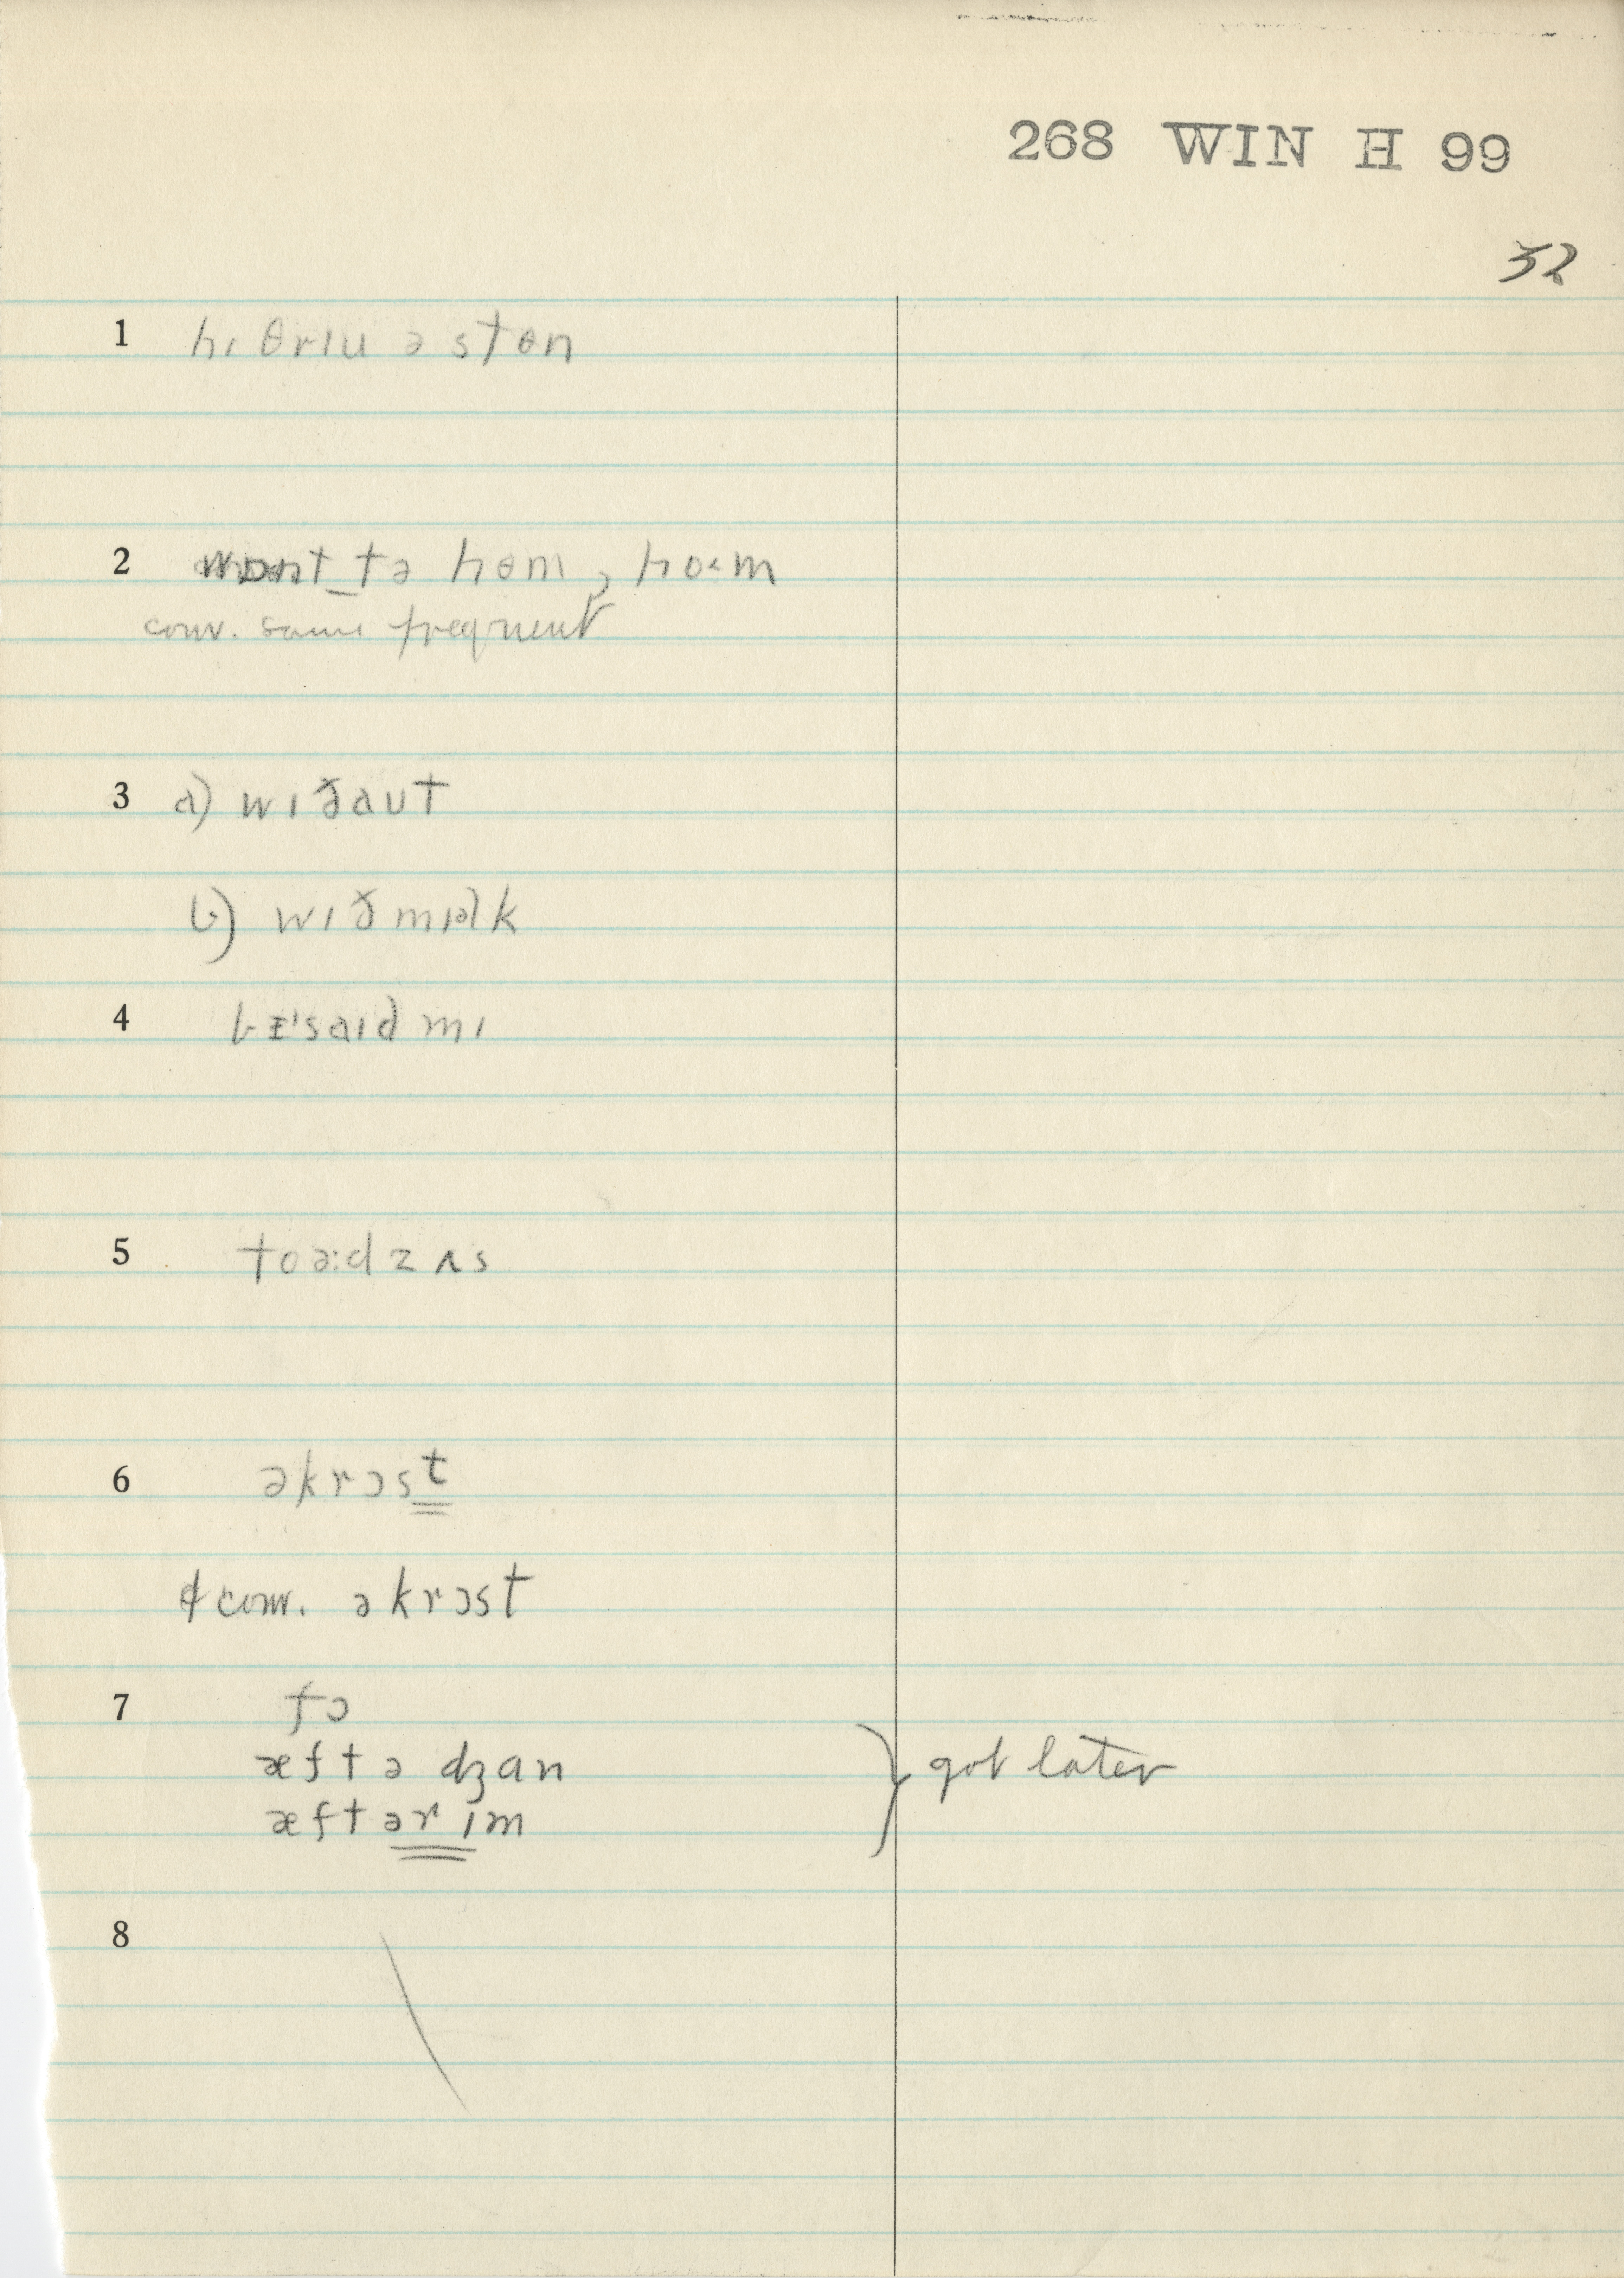 268 WIN H 99
32
1 hɪ θrɪu ə stɵn
2 wɒnt tə hɵm, ho<m
conv. same frequent
3 a) wɪðaʊt
b) wɪð mɪəlk
4 bɪ'saɪd mɪ
5 toə:dz ʌs
6 əkrɔst
¢ conv. əkrɔst
7 fɔ
æftə dʒan
æftər ɪm } got later
8